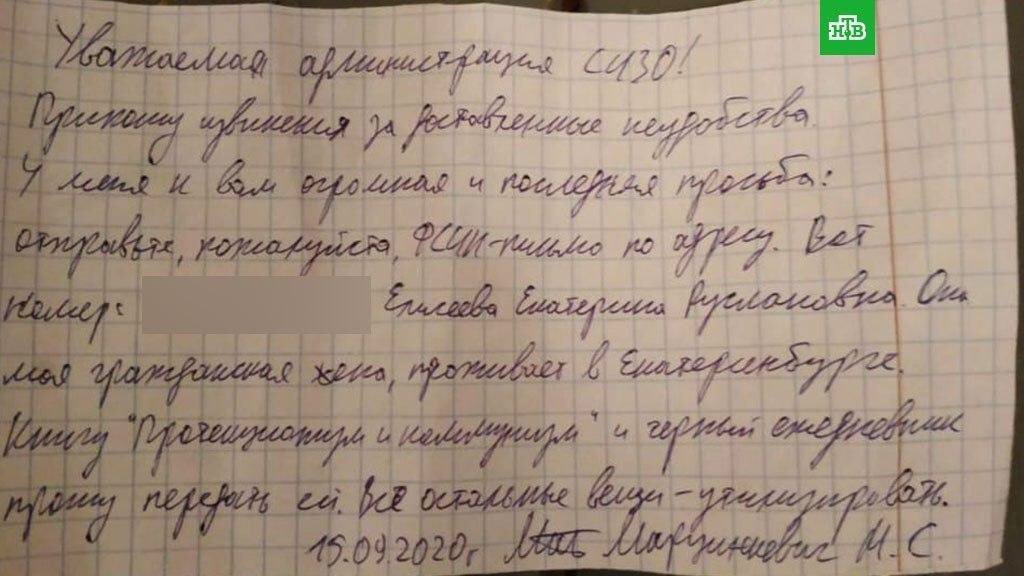 НТВ
Уважаемая администрация СИЗО!
Приношу извинения за доставленные неудобства.
У меня к вам огромная и последняя просьба:
отправьте, пожалуйста, ФСИН-письмо по адресу. Вот
номер: Елисеева Екатерина Руслановна. Она
моя гражданская жена, проживает в Екатеринбурге.
Книгу "Протекционизм и коммунизм" и черный ежедневник
прошу передать ей. Все остальные вещи - утилизировать.
15.09.2020г Марцинкевич М.С.